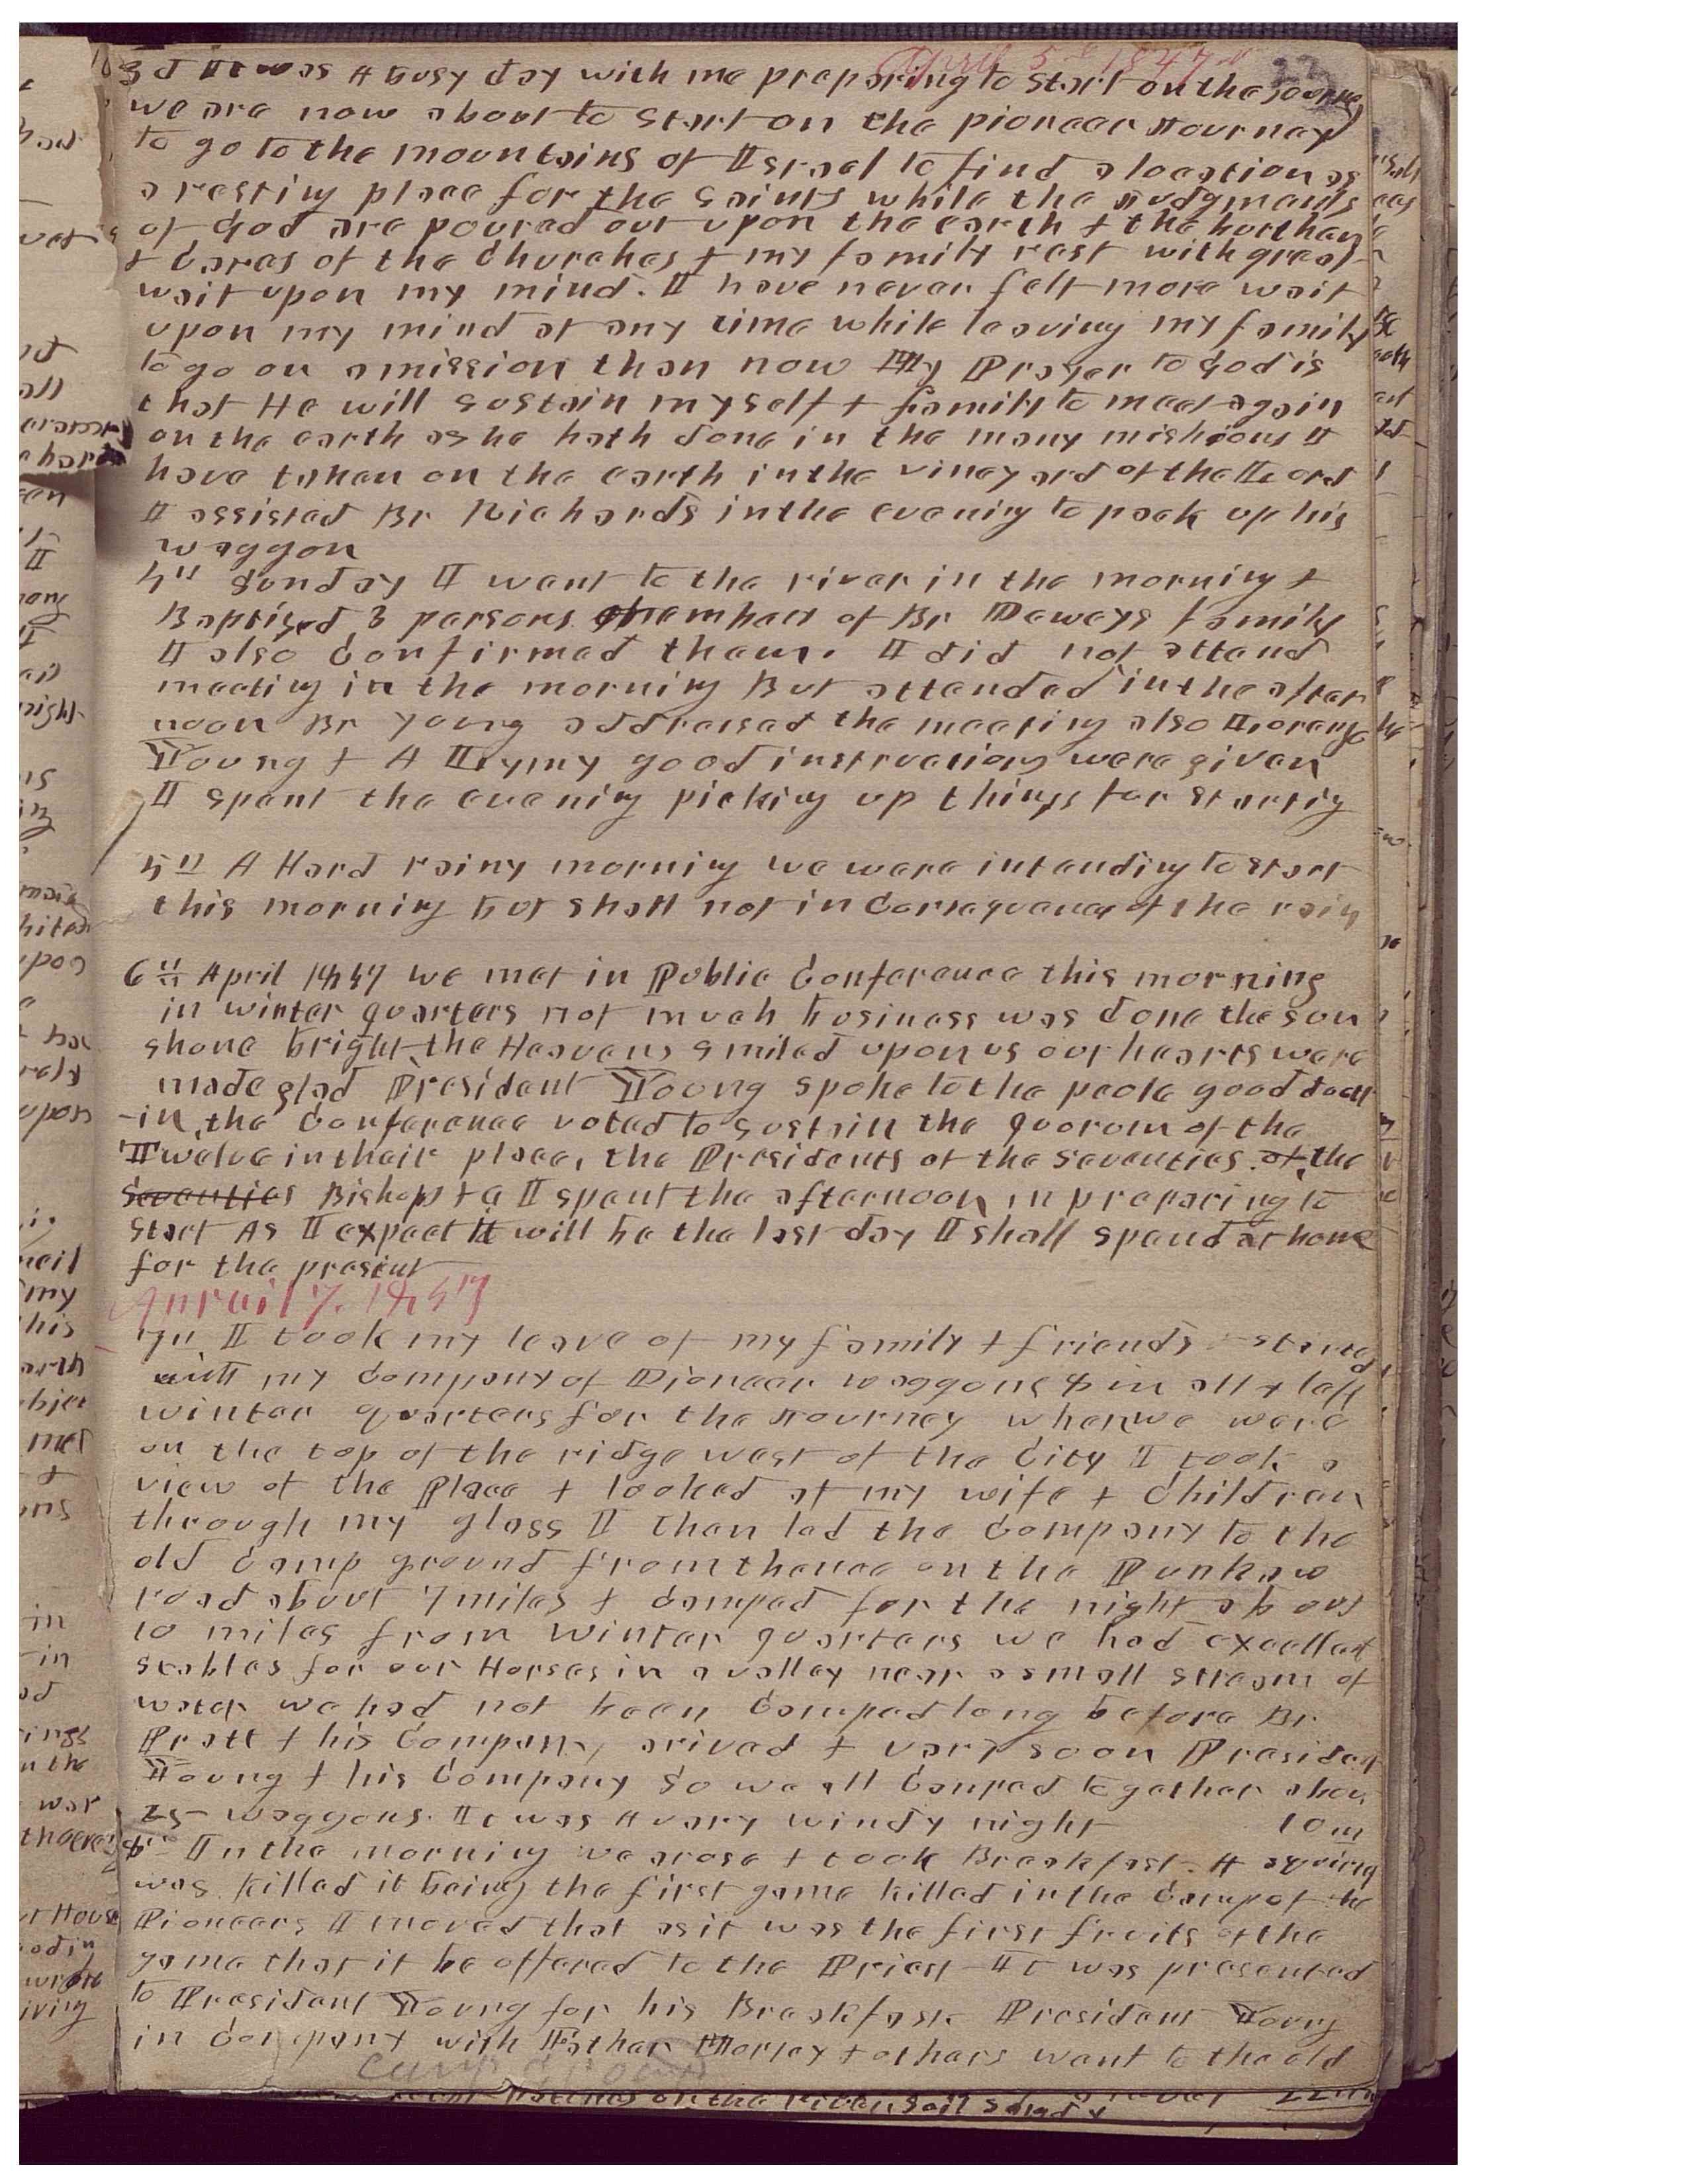 April 5th 1847
3d It was A busy day with me preparing to start on the journey
we are now about to start on the pioneer Journey
to go to the mountains of Israel to find a location as
a resting place for the saints while the Judgments
of God are poured out upon the earth & the burthen
& Cares of the Churches & my family rest with great
wait upon my mind. I have never felt more wait
upon my mind at any time while leaving my family
to go on a mission than now My Prayer to God is
that He will sustain myself & family to meet again
on the earth as he hath done in the many mishions I
have taken on the earth in the vineyard of the Lord
I assisted Br Richards in the evening to pack up his
waggon
4th Sunday I went to the river in the morning &
Baptised 3 persons members of Br Deweys family
I also Confirmed them. I did not attend
meeting in the morning But attended in the after
noon Br Young addressed the meeting also Lorenzo
Young & A Lymy good instructions were given
I spent the evening picking up things for starting
5th A Hard rainy morning we were intending to start
this morning but shall not in Consequence of the rain
6th April 1847 we met in Public Conference this morning
in winter quarters not much business was done the sun
shone bright the Heavens smiled upon us our hearts were
made glad President Young spoke to the peole good doctr
-in, the Conference voted to sustain the quorum of the
Twelve in their place, the Presidents of the seventies of the
seventies Bishops &c I spent the afternoon in preparing to
start As I expect it will be the last day I shall spend at home
for the present
Aprail 7. 1847
7th I took my leave of my family & friends started
with my Company of Pioneer waggons 8 in all & left
winter quarters for the Journey when we were
on the top of the ridge west of the City I took a
view of the Place & looked at my wife & Children
through my glass I then led the Company to the
old Camp ground from thence on the Punkaw
road about 7 miles & Camped for the night about
10 miles from winter quarters we had excellent
stables for our Horses in a valley near a small stream of
water we had not been Camped long before Br
Pratt & his Company arived & very soon President
Young & his Company so we all Camped together about
25 waggons. It was A very windy night 10 m
8th In the morning we arose & took Breakfast. A squirrel
was killed it being the first game killed in the Camp of the
Pioneers I moved that as it was the first fruits of the
game that it be offered to the Priest It was presented
to President Young for his Breakfast President Young
in Company with Father Morley & others went to the old
Camp Ground